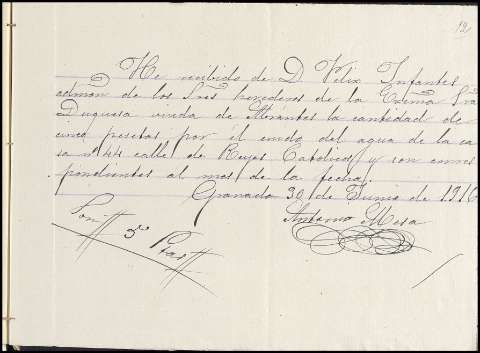 12
He recibido de D Felix Infantes
admon de los Sres herederos de la Exema Sra
Duquesa viuda de Abrantes la cantidad de
cinco pesetas por el
del agua de la ca
sa nº 44 calle de Reyes Catolicos y son corres
pondientes al mes de la fecha
Granada 30 de Junio de 1916
Antonio Mesa
Son 5 Ptas